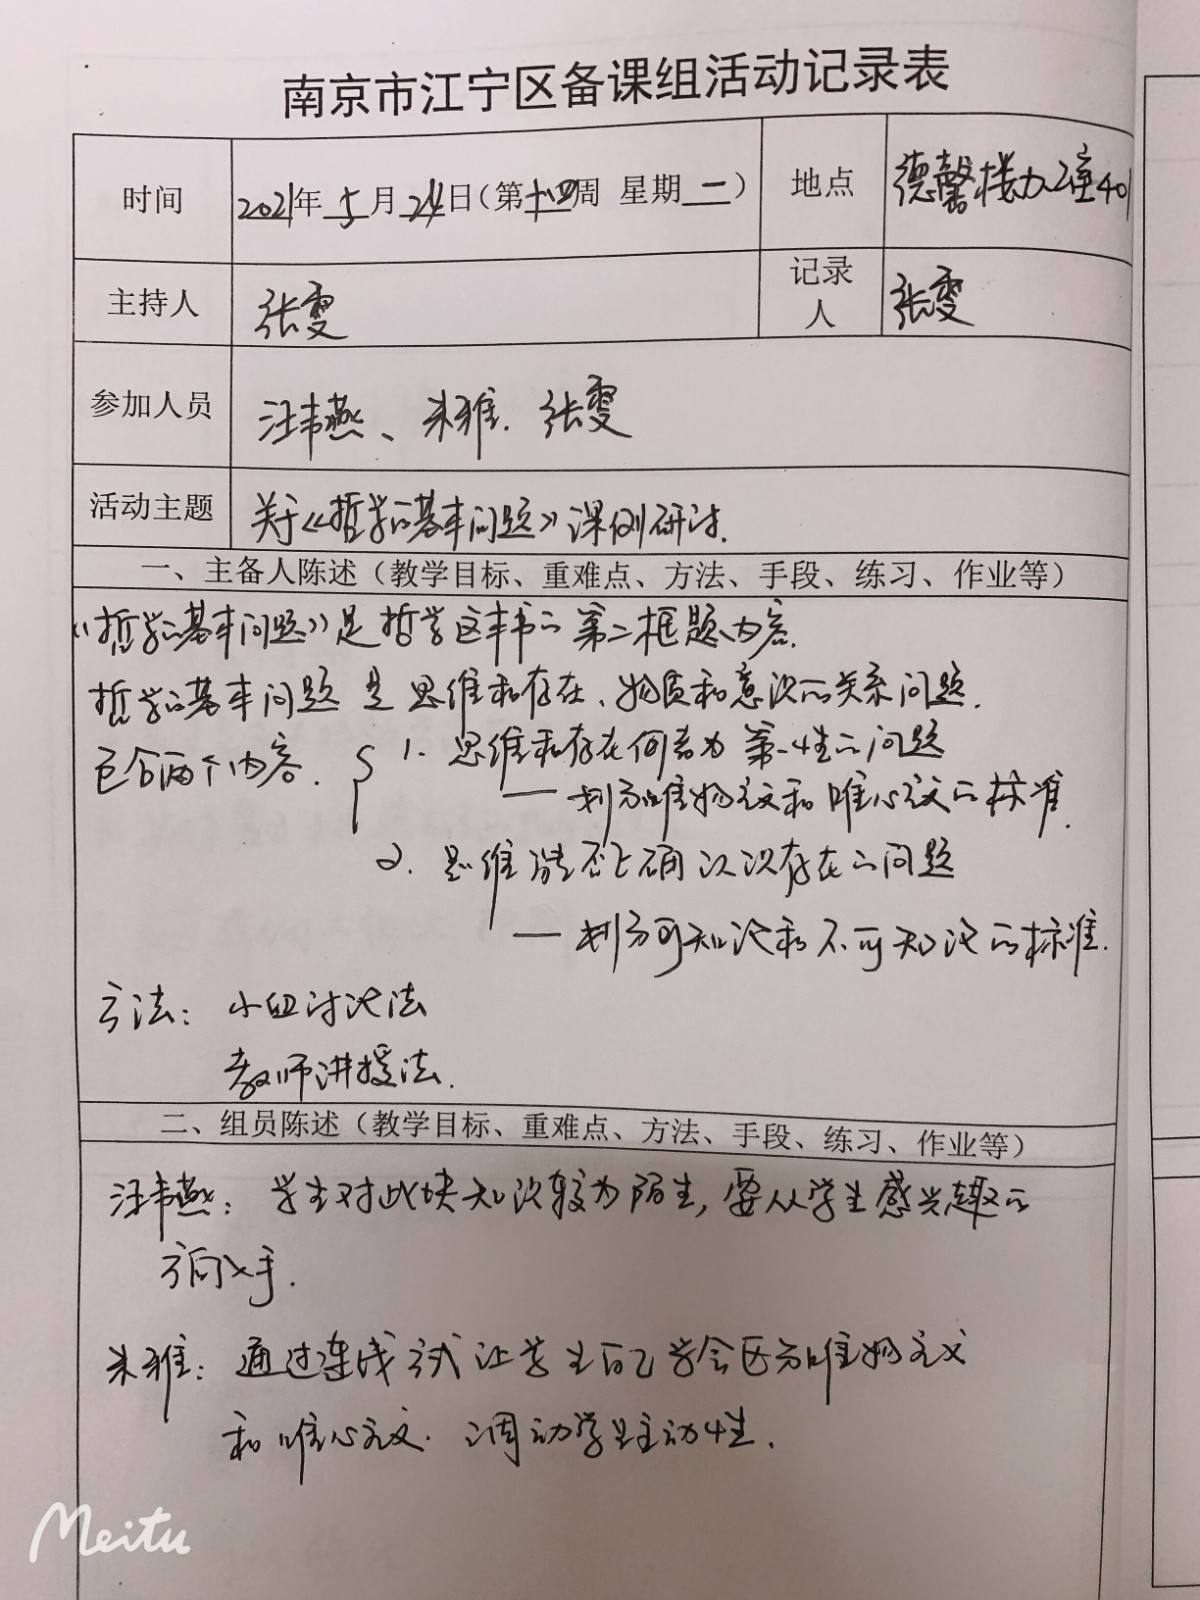 南京市江宁区备课组活动记录表
时间 2021年5月24日(第十四周 星期二) 地点 德馨楼办公室401
主持人 张雯 记录人 张雯
参加人员 汪韦燕、朱雅.张雯
活动主题 关于《哲学的基本问题》课例研讨.
一、主备人陈述(教学目标、重难点、方法、手段、练习、作业等)
《哲学的基本问题》是哲学这本书的第二框题内容.
哲学的基本问题是思维和存在、物质和意识的关系问题.
包含两个内容. 1. 思维和存在何者为第一性的问题
— 划分唯物主义和唯心主义的标准.
2. 思维能否正确认识存在的问题
— 划分可知论和不可知论的标准.
方法: 小组讨论法
教师讲授法.
二、组员陈述(教学目标、重难点、方法、手段、练习、作业等)
汪韦燕: 学生对此块知识较为陌生,要从学生感兴趣的
方向入手.
朱雅: 通过连线方式让学生自己学会区分唯物主义
和唯心主义. 调动学生主动性.
Meitu